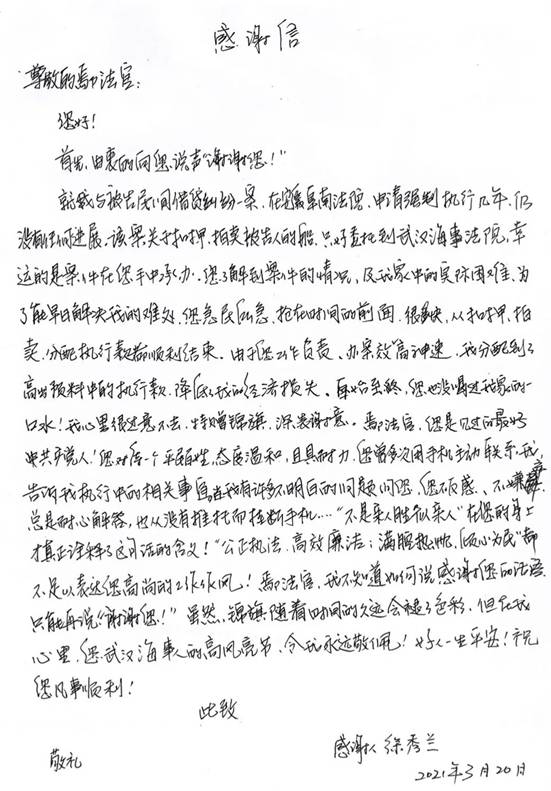 感谢信
尊敬的焉法官:
您好!
首先,由衷的向您说声“谢谢您!”
就我与被告民间借贷纠纷一案,在阜南法院,申请强制执行几年,仍
没有任何进展。该案关于扣押、拍卖被告人的船,只好委托到武汉海事法院,幸
运的是案件在您手中承办。您了解到案件的情况,及我家中的实际困难,为
了能早日解决我的难处,您急民所急,抢在时间的前面,很快,从扣押、拍
卖、分配执行款都顺利结束。由于您工作负责、办案效高神速,我分配到了
高出预料中的执行款,降低了我的经济损失。自始至终,您也没喝过我家的一
口水!我心里很过意不去,特赠锦旗,深表谢意。焉法官,您是见过的最好
中共党人!您对待一个平百姓,态度温和,且具耐力,您曾多次用手机主动联系我,
告诉我执行中的相关事宜,当我有许多不明白的问题问您,您不反感、不嫌
总是耐心解答,也从没有推托而挂断手机……“不是亲人胜似亲人”在您的身上
才真正诠释了这句话的含义!“公正执法,高效廉洁;满腔热忱,倾心为民”都
不足以表达您高尚的工作作风!焉法官,我不知道如何说感谢您的话语,
只能再说“谢谢您!”虽然,锦旗随着时间的久远会褪了色彩,但在我
心里,您武汉海事人的高风亮节,令我永远敬佩!好人一生平安!祝
您凡事顺利!
此致
敬礼
感谢人 徐秀兰
2021年3月20日